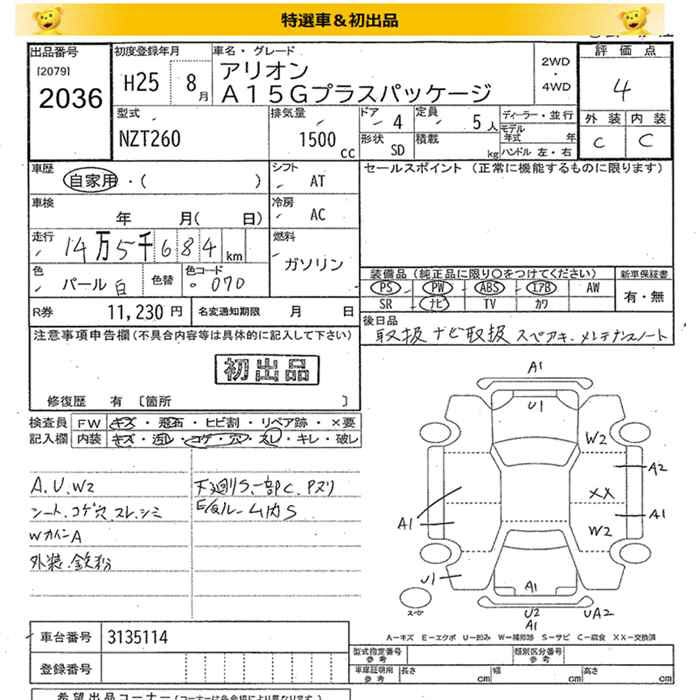 特選車＆初出品
出品番号
[2079]
2036
初度登録年月
H25 8月
車名・グレード
アリオン
A15Gプラスパッケージ
2WD
・
4WD
評価点
4
外装 内装
C C
型式
NZT260
排気量
1500 cc
ドア 4
定員 5人
形状 SD
積載 kg
ディーラー・並行
モデル年式 年
ハンドル 左・右
車歴
自家用・( )
シフト
AT
セールスポイント (正常に機能するものに限ります)
車検
年 月( 日)
冷房
AC
走行
14万5千684km
燃料
ガソリン
色
パール白
色替
色コード
070
装備品 (純正品に限り〇をつけてください)
新車保証書
PS PW ABS エアB AW
SR ナビ TV カワ
有・無
R券 11,230円
名変通知期限 月 日
後日品
取扱 ナビ取扱 スペアキー.メンテナンスノート
注意事項申告欄 (不具合内容等は具体的に記入して下さい)
初出品
修復歴 有 〔箇所 〕
検査員
記入欄
FW キズ・飛石・ヒビ割・リペア跡・×要
内装 キズ・汚レ・コゲ・穴・スレ・キレ・破レ
A.U.W2
シート.コゲ穴.スレ.シミ
WカインA
外装.鉄粉
下廻りS.一部C.Pヌリ
E/Gルーム内S
A1
U1
W2
A2
XX
A1
A1
W2
U1
A1
スペア
U2
A1
UA2
A－キズ E－エクボ U－凹み W－補修跡 S－サビ C－腐食 XX－交換済
車台番号 3135114
登録番号
型式指定番号
参考
類別区分番号
参考
車庫証明用
参考
長さ cm
幅 cm
高さ cm
希望出品コーナー (コーナーは各会場